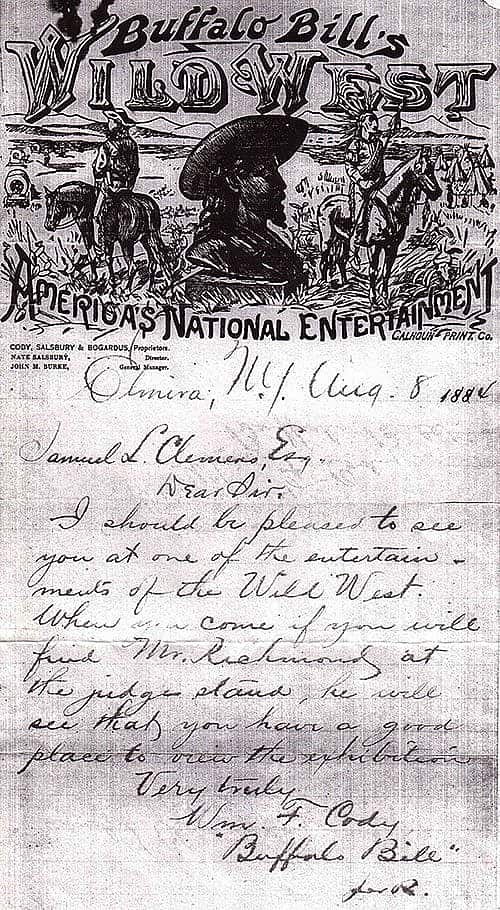 Buffalo Bill's
WILD WEST
AMERICA'S NATIONAL ENTERTAINMENT
CALHOUN PRINT. Co.
CODY, SALSBURY & BOGARDUS, Proprietors.
NATE SALSBURY, Director.
JOHN M. BURKE, General Manager.
Elmira, N.Y. Aug. 8 1884
Samuel L. Clemens, Esq.
Dear Sir.
I should be pleased to see
you at one of the entertain-
ments of the Wild West.
When you come if you will
find Mr. Richmond, at
the judge stand, he will
see that you have a good
place to view the exhibition
Very truly
Wm. F. Cody
"Buffalo Bill"
per R.